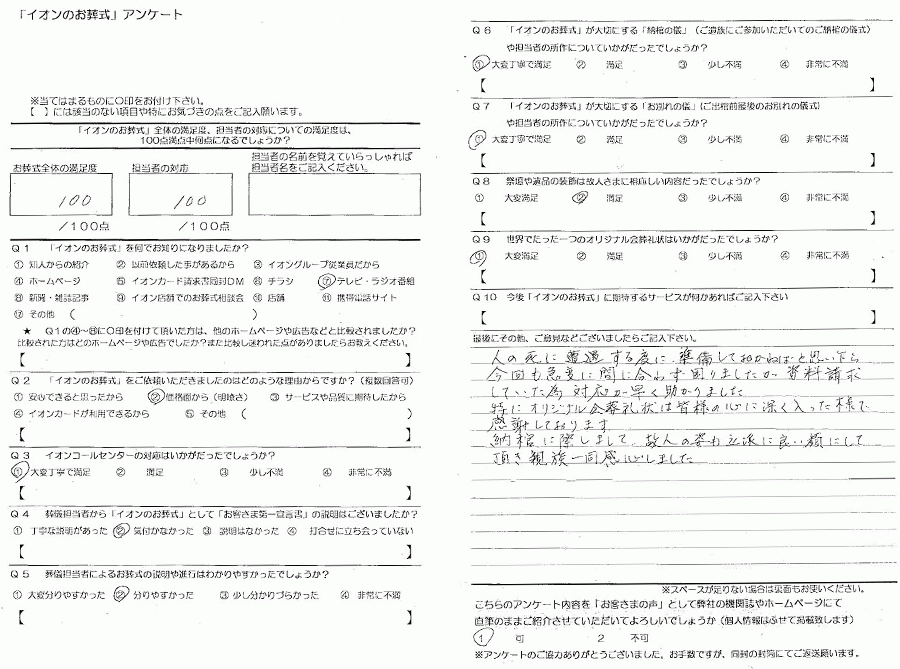 「イオンのお葬式」アンケート
※当てはまるものに○印をお付け下さい。
【 】には該当のない項目や特にお気づきの点をご記入願います。
「イオンのお葬式」全体の満足度、担当者の対応についての満足度は、
100点満点中何点になるでしょうか?
お葬式全体の満足度
担当者の対応
担当者の名前を覚えていらっしゃれば
担当者名をご記入ください。
100
100
/100点
/100点
Q1 「イオンのお葬式」を何でお知りになりましたか?
① 知人からの紹介 ② 以前依頼した事があるから ③ イオングループ従業員だから
④ ホームページ ⑤ イオンカード請求書同封DM ⑥ チラシ ⑦ テレビ・ラジオ番組
⑧ 新聞・雑誌記事 ⑨ イオン店舗でのお葬式相談会 ⑩ 店舗 ⑪ 携帯電話サイト
⑫ その他 ( )
★ Q1の④~⑪に○印を付けて頂いた方は、他のホームページや広告などと比較されましたか?
比較された方はどのホームページや広告でしたか?また比較し迷われた点がありましたらお教えください。
【 】
Q2 「イオンのお葬式」をご依頼いただきましたのはどのような理由からですか?(複数回答可)
① 安心できると思ったから ② 価格面から(明瞭さ) ③ サービスや品質に期待したから
④ イオンカードが利用できるから ⑤ その他 ( )
【 】
Q3 イオンコールセンターの対応はいかがだったでしょうか?
① 大変丁寧で満足 ② 満足 ③ 少し不満 ④ 非常に不満
【 】
Q4 葬儀担当者から「イオンのお葬式」として「お客さま第一宣言書」の説明はございましたか?
① 丁寧な説明があった ② 気付かなかった ③ 説明はなかった ④ 打合せに立ち会っていない
【 】
Q5 葬儀担当者によるお葬式の説明や進行はわかりやすかったでしょうか?
① 大変分りやすかった ② 分りやすかった ③ 少し分かりづらかった ④ 非常に不満
【 】
Q6 「イオンのお葬式」が大切にする「納棺の儀」(ご遺族にご参加いただいてのご納棺の儀式)
や担当者の所作についていかがだったでしょうか?
① 大変丁寧で満足 ② 満足 ③ 少し不満 ④ 非常に不満
【 】
Q7 「イオンのお葬式」が大切にする「お別れの儀」(ご出棺前最後のお別れの儀式)
や担当者の所作についていかがだったでしょうか?
① 大変丁寧で満足 ② 満足 ③ 少し不満 ④ 非常に不満
【 】
Q8 祭壇や遺品の装飾は故人さまに相応しい内容だったでしょうか?
① 大変満足 ② 満足 ③ 少し不満 ④ 非常に不満
【 】
Q9 世界でたった一つのオリジナル会葬礼状はいかがだったでしょうか?
① 大変満足 ② 満足 ③ 少し不満 ④ 非常に不満
【 】
Q10 今後「イオンのお葬式」に期待するサービスが何かあればご記入下さい
【 】
最後にその他、ご意見などございましたらご記入下さい。
人の死に遭遇する度に、準備しておかねばと思い乍ら
今回も急変に間に合わず困りましたが資料請求
していた為対応が早く助かりました
特にオリジナル会葬礼状は皆様の心に深く入った様で
感謝しております
納棺に際しまして、故人の姿も立派に良い顔にして
頂き親族一同感心しました
※スペースが足りない場合は裏面もお使いください。
こちらのアンケート内容を「お客さまの声」として弊社の機関誌やホームページにて
直筆のままご紹介させていただいてよろしいでしょうか(個人情報はふせて掲載致します)
1 可 2 不可
※アンケートのご協力ありがとうございました、お手数ですが、同封の封筒にてご返送願います。